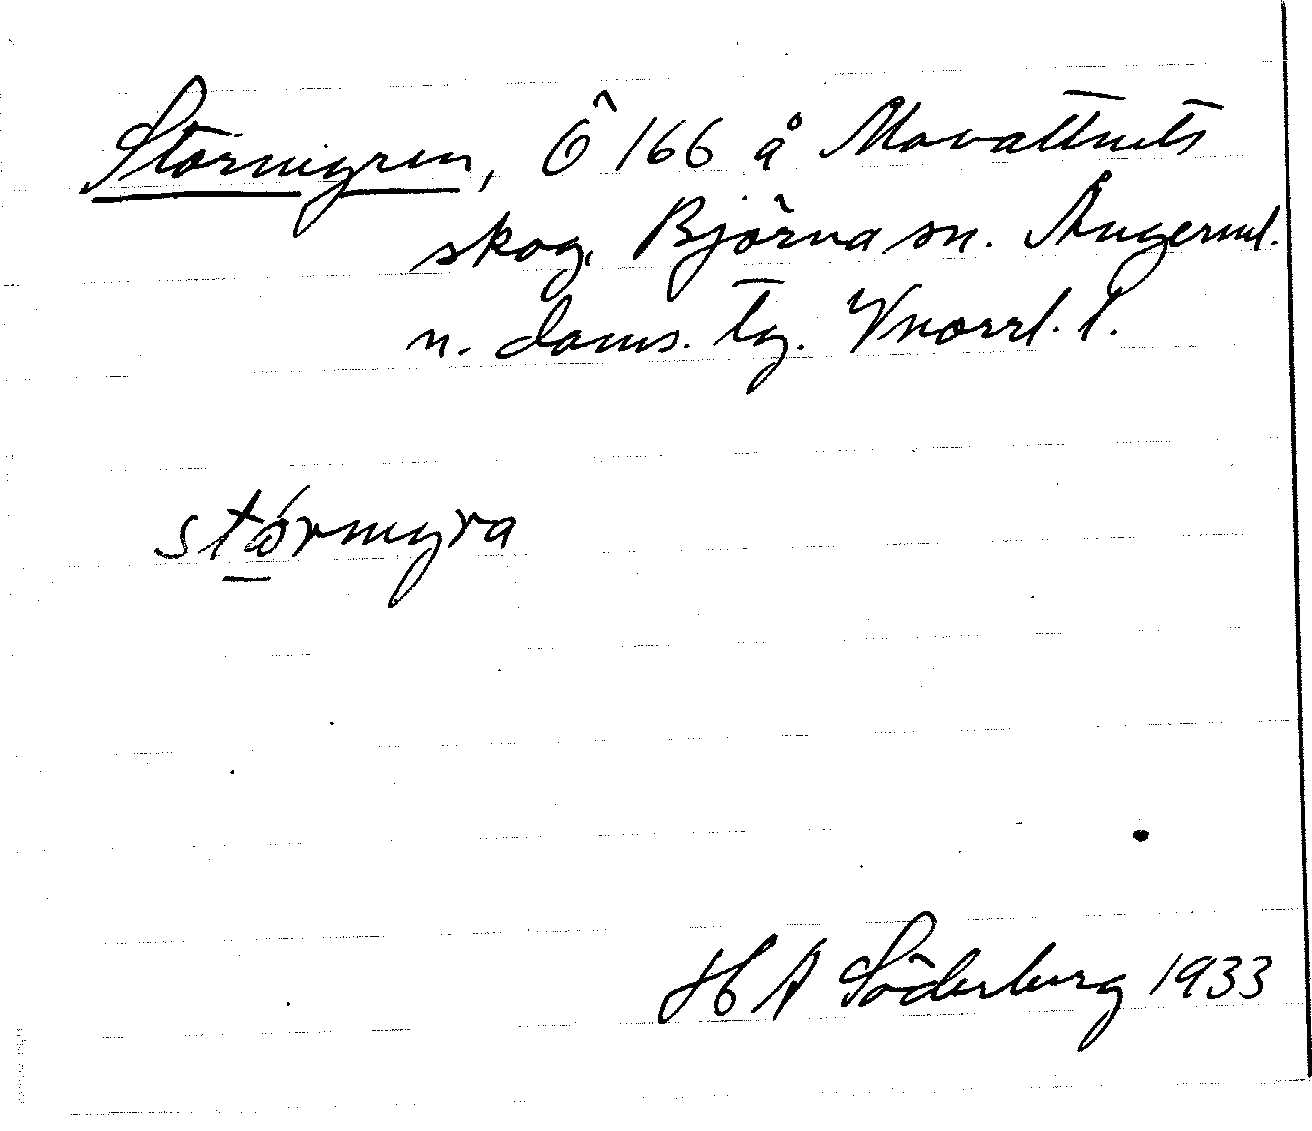 Stormyren, Ö 166 å Movattnets
skog, Björna sn. Ångerml.
n. doms. tg. Vnorrl. l.
stórmyra
H A Söderberg 1933